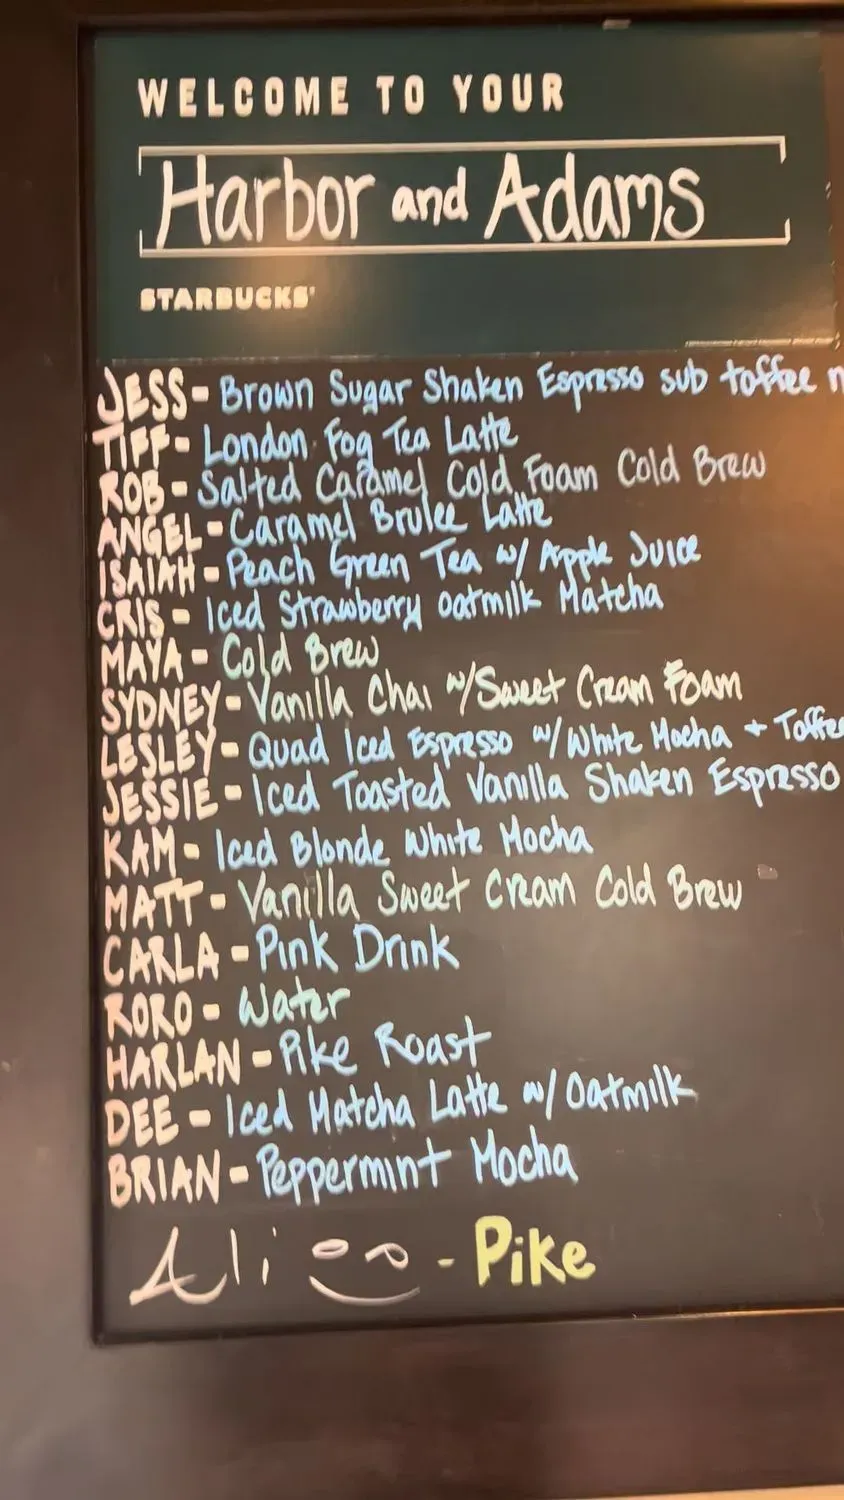 WELCOME TO YOUR
Harbor and Adams
STARBUCKS
JESS - Brown Sugar Shaken Espresso sub toffee n
TIFF - London Fog Tea Latte
ROB - Salted Caramel Cold Foam Cold Brew
ANGEL - Caramel Brulee Latte
ISAIAH - Peach Green Tea w/ Apple Juice
CRIS - Iced Strawberry Oatmilk Matcha
MAYA - Cold Brew
SYDNEY - Vanilla Chai w/Sweet Cream Foam
LESLEY - Quad Iced Espresso w/White Mocha + Toffee
JESSIE - Iced Toasted Vanilla Shaken Espresso
KAM - Iced Blonde White Mocha
MATT - Vanilla Sweet Cream Cold Brew
CARLA - Pink Drink
RORO - Water
HARLAN - Pike Roast
DEE - Iced Matcha Latte w/ Oatmilk
BRIAN - Peppermint Mocha
Ali - Pike